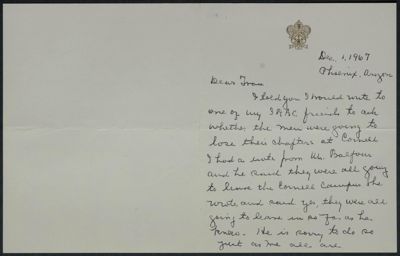 Dec. 1, 1967
Phoenix, Arizon
Dear Fran
I told you I would write to
one of my IRAC friends to ask
whether the men were going to
lose their chapters at Cornell
I had a note from Mr. Balfour
and he said they were all going
to leave the Cornell Campus. He
wrote and said yes, they were all
going to leave in so far as he
knew. He is sorry to do so
just as we all are